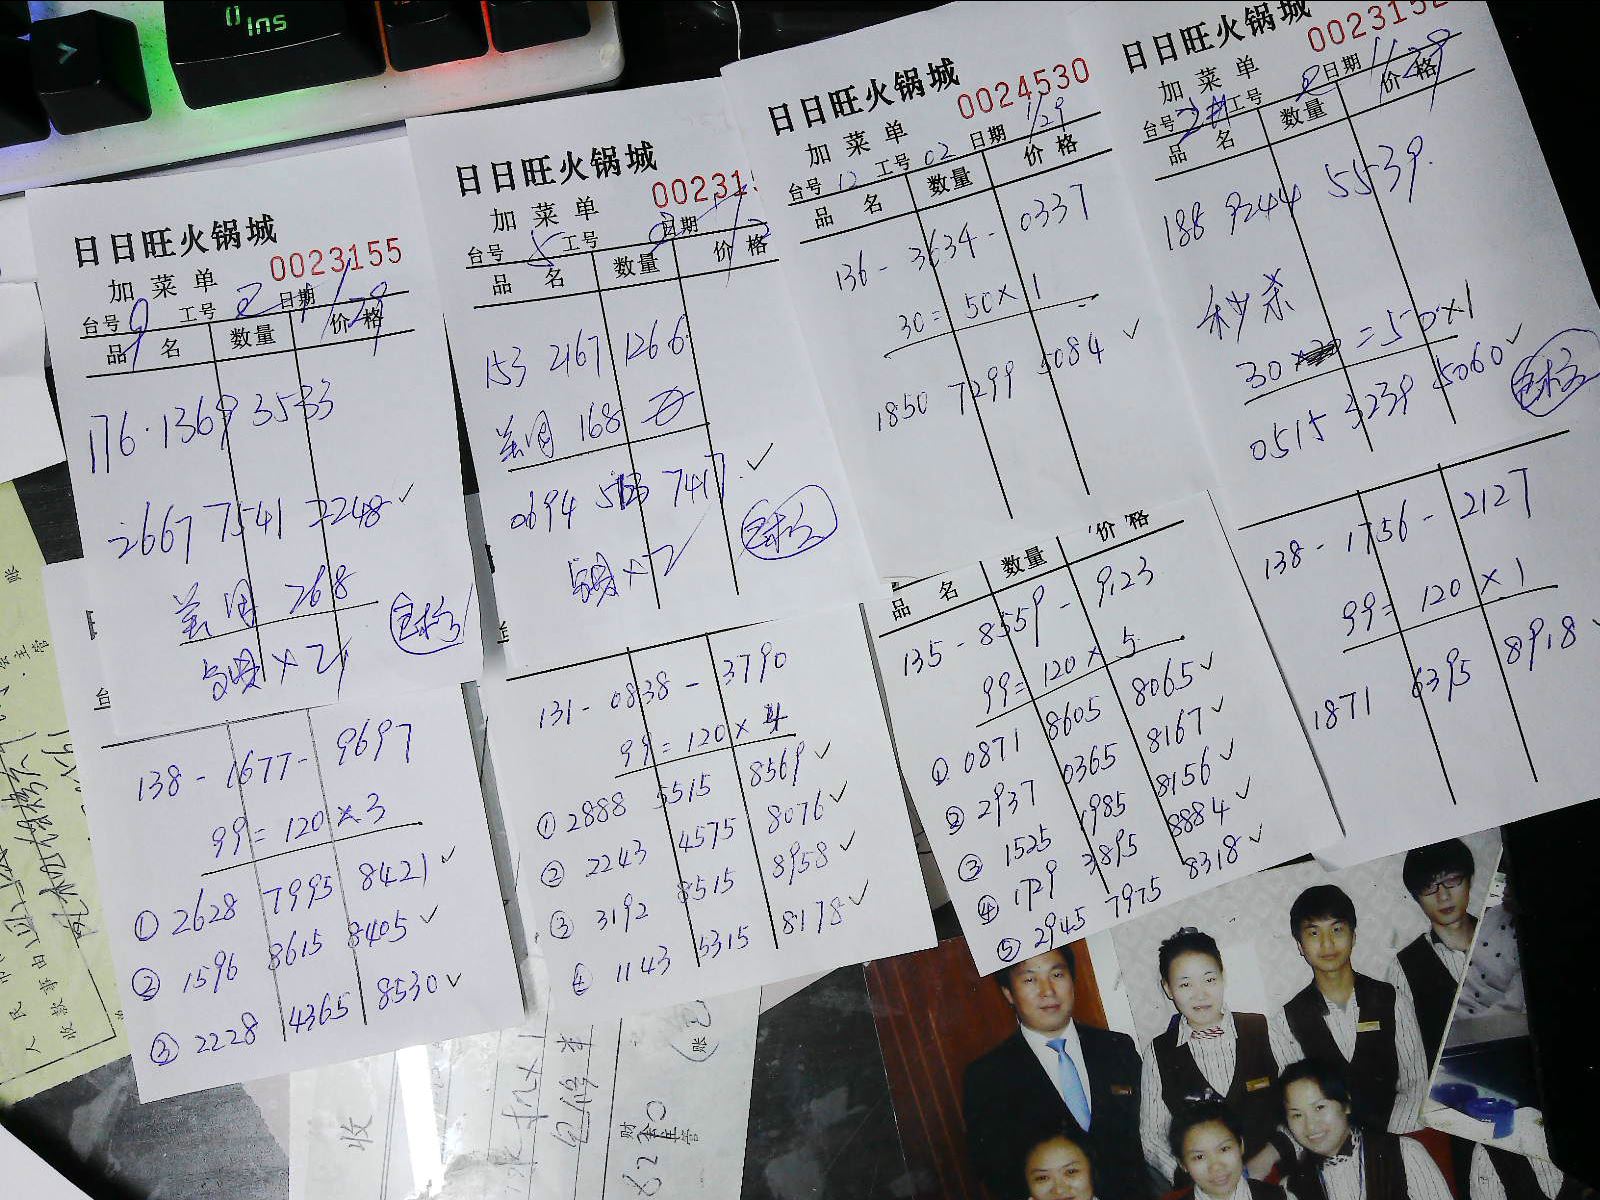 Ins
日日旺火锅城
加菜单 0023155
台号 9 工号 2 日期 1/29
品名 数量 价格
176·1369 3533
2667 7541 2248 ✓
美团 268
×2
138-1677-9697
99=120×3
① 2628 7995 8421 ✓
② 1596 8615 8405 ✓
③ 2228 4365 8530 ✓
日日旺火锅城
加菜单 00231
台号 5 工号 日期
品名 数量 价格
153 2167 1266
美团 168
0694 7417 ✓
×2
131-0838-3790
99=120×4
① 2888 5515 8569 ✓
② 2243 4575 8076 ✓
③ 3192 8515 8958 ✓
④ 1143 5315 8178 ✓
日日旺火锅城
加菜单 0024530
台号 12 工号 02 日期 1/29
品名 数量 价格
136-3634-0337
30=50×1
1850 7299 5084 ✓
品名 数量 价格
135-8559-9123
99=120×5
① 0871 8605 8065 ✓
② 2937 0365 8167 ✓
③ 1525 1985 8156 ✓
④ 1729 3895 8884 ✓
⑤ 2945 7975 8318 ✓
日日旺火锅城
加菜单 0023152
台号 2# 工号 2 日期 1/29
品名 数量 价格
188 9244 5539
秒杀
30=50×1
0515 3239 5060 ✓
138-1756-2127
99=120×1
1871 6395 8918 ✓
收